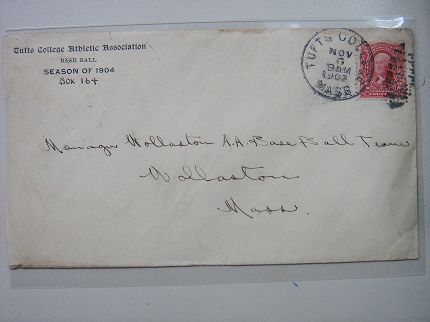 Tufts College Athletic Association
BASE BALL
SEASON OF 1904
Box 164
TUFTS COL
NOV
6
MASS
Manager Wollaston A.A. Base Ball Team
Wollaston
Mass.